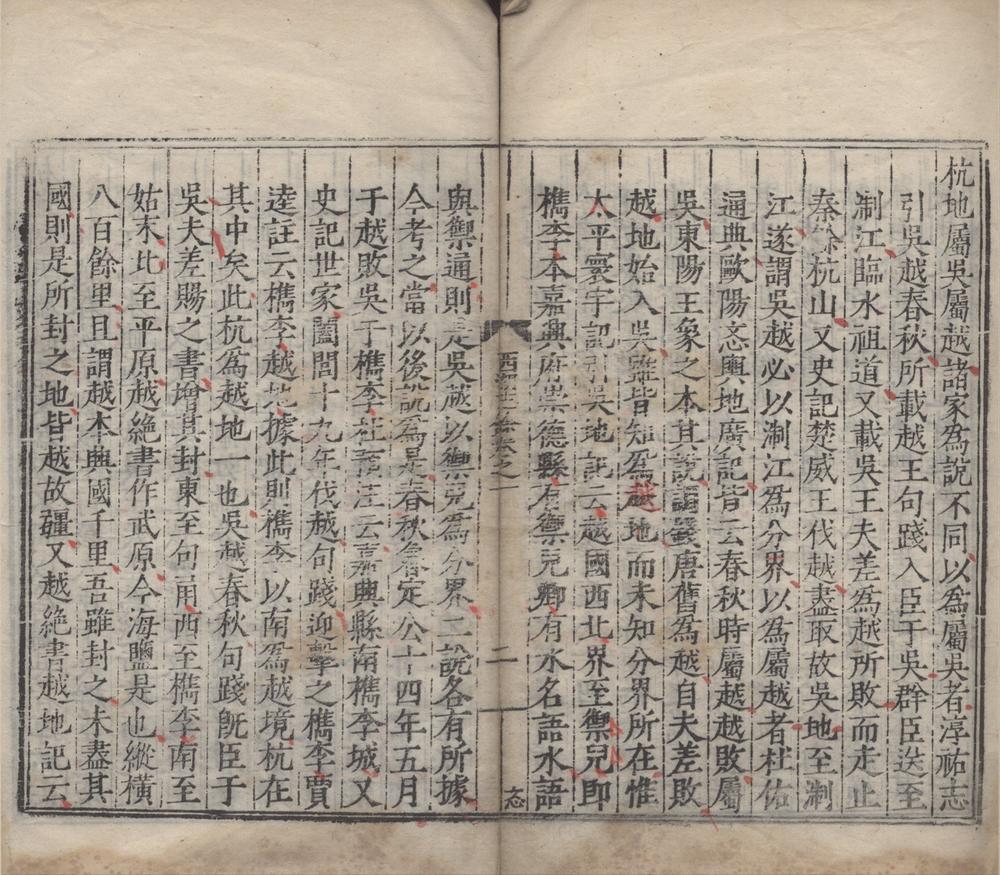 杭地屬吳屬越諸家為說不同以為屬吳者淳祐志
引吳越春秋所載越王句踐入臣于吳群臣送至
淛江臨水祖道又載吳王夫差為越所敗而走止
秦餘杭山又史記楚威王伐越盡取故吳地至淛
江遂謂吳越必以淛江為分界以為屬越者杜佑
通典歐陽忞輿地廣記皆云春秋時屬越越敗屬
吳東陽王象之本其說謂錢唐舊為越自夫差敗
越地始入吳雖皆知為越地而未知分界所在惟
太平寰宇記引吳地記云越國西北界至禦兒即
檇李本嘉興府崇德縣有禦兒鄉有水名語水語
二
與禦通則是吳越以禦兒為分界二說各有所據
今考之當以後說為是春秋魯定公十四年五月
于越敗吳于檇李杜預注云嘉興縣南檇李城又
史記世家闔閭十九年伐越句踐迎擊之檇李賈
逵註云檇李越地據此則檇李以南為越境杭在
其中矣此杭為越地一也吳越春秋句踐旣臣于
吳夫差賜之書增其封東至句甬西至檇李南至
姑末北至平原越絕書作武原今海鹽是也縱橫
八百餘里且謂越本興國千里吾雖封之未盡其
國則是所封之地皆越故疆又越絕書越地記云